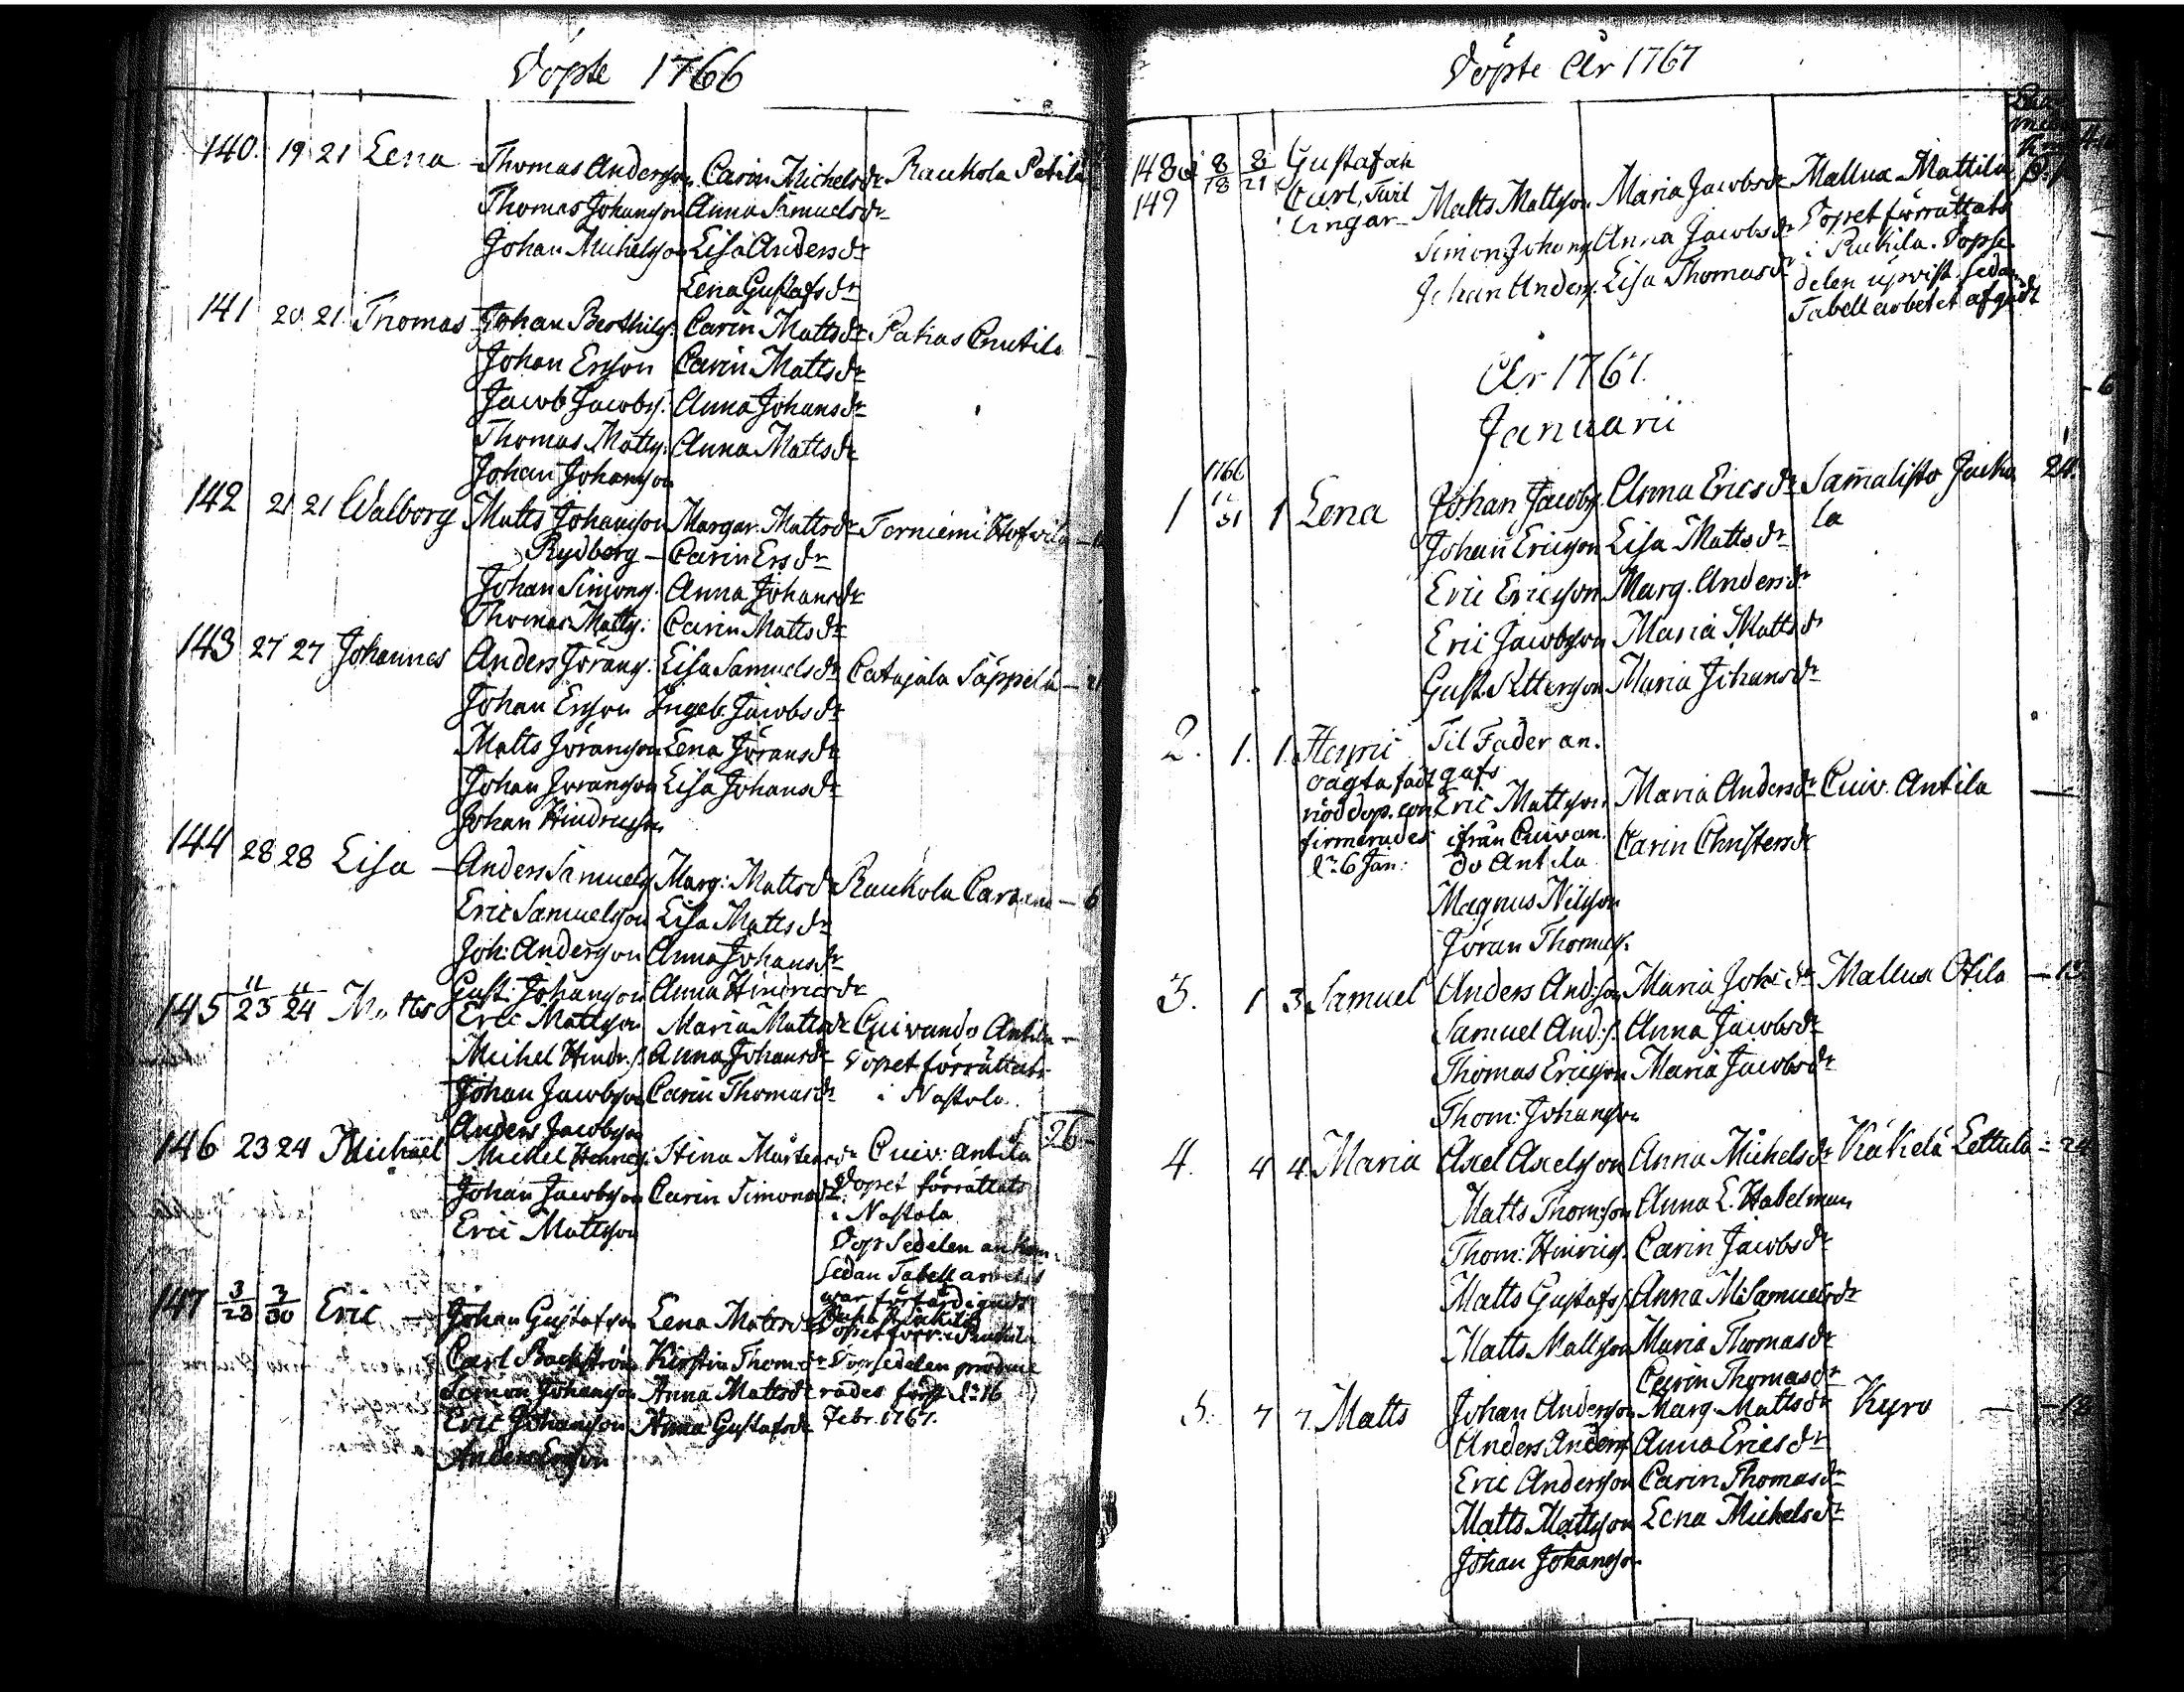 Döpte 1766
140. 19 21 Lena Thomas Anderson Carin Michelsdr Raukola Petila
Thomas Johanson Anna Samuelsdr
Johan Michelson Lisa Andersdr
Lena Gustafsdr
141 20 21 Thomas Johan Berthils. Carin Mattsdr Pakas Cnutila
Johan Erson Carin Mattsdr
Jacob Jacobs. Anna Johansdr
Thomas Matts. Anna Mattsdr
Johan Johanson
142 21 21 Walborg Matts Johanson Margar. Mattsdr Torniemi
Rydberg – Carin Ersdr
Johan Simons. Anna Johansdr
Thomas Matts. Carin Mattsdr
143 27 27 Johannes Anders Jörans. Lisa Samuelsdr Catajala Säppilä –
Johan Erson Ingeb. Jacobsdr
Matts Jöranson Lena Jöransdr
Johan Jöranson Lisa Johansdr
Johan Hindricson
144 28 28 Lisa – Anders Samuels. Marg: Mattsdr Raukola – 6
Eric Samuelson Lisa Mattsdr
Joh: Anderson Anna Johansdr
Gust: Johanson Anna Hinricsdr
145 11/23 11/24 Matts Eric Mattson Maria Mattsdr Cuivando Antila –
Michel Hindr.s. Anna Johansdr Döpet förrättats
Johan Jacobson Carin Thomasdr i Nastola.
Anders Jacobson
26
146 23 24 Michaël Michel Henrics. Stina Mårtensdr Cuiv: Antila
Johan Jacobson Carin Simonsdr Döpet förrättats
Eric Mattson i Nastola
Döp Sedelen ankom
sedan Tabell arbetet
war färdigadt
147 3/23 3/30 Eric – Johan Gustafson Lena Mattsdr
Döpet förr: i Rukila
Carl Backström Kirstin Thomsdr Döpsedelen produce
Simon Johanson Anna Mattsdr rades först dn 16
Eric Johanson Anna Gustafsdr Febr. 1767.
Anders Erson
Döpte År 1767
148 8/18 8/21 Gustaf och
149 Carl, Twil
lingar – Matts Mattson Maria Jacobsdr Mallua Mattila
Simon Johans. Anna Jacobsdr Döpet förrättats
i Rukila. Döpse
Johan Anders. Lisa Thomasdr delen upwist sedan
Tabell arbetet afgådt
År 1767.
Januarii
6
1766
1 31 1 Lena Johan Jacobs. Anna Ericsdr Samalisto Jacko 24.
la
Johan Ericson Lisa Mattsdr
Eric Ericson Marg. Andersdr
Eric Jacobson Maria Mattsdr
Gust. Petterson Maria Johansdr
2. 1. 1. Henric Til Fader an.
oägta född gafs
nöddöp. con Eric Mattson Maria Andersdr Cuiv. Antila –
firmerades ifrån Cuivan.
dn 6 Jan: do Antila Carin Christersdr
Magnus Nilson
Jöran Thomas.
3. 1 3 Samuel Anders And:son Maria Johsdr Mallua Otila
Samuel And:s. Anna Jacobsdr
Thomas Ericson Maria Jacobsdr
Thom: Johanson
4. 4 4. Maria Axel Axelson Anna Michelsdr Käkelä Lettula
Matts Thom:son Anna L. Habelman
Thom: Hinrics. Carin Jacobsdr
Matts Gustafs. Anna M. Samuelsdr
Matts Mattson Maria Thomasdr
Carin Thomasdr
5. 7 7. Matts Johan Anderson Marg. Mattsdr Kyrö – 18
Anders Anders. Anna Ericsdr
Eric Anderson Carin Thomasdr
Matts Mattson Lena Michelsdr
Johan Johanson